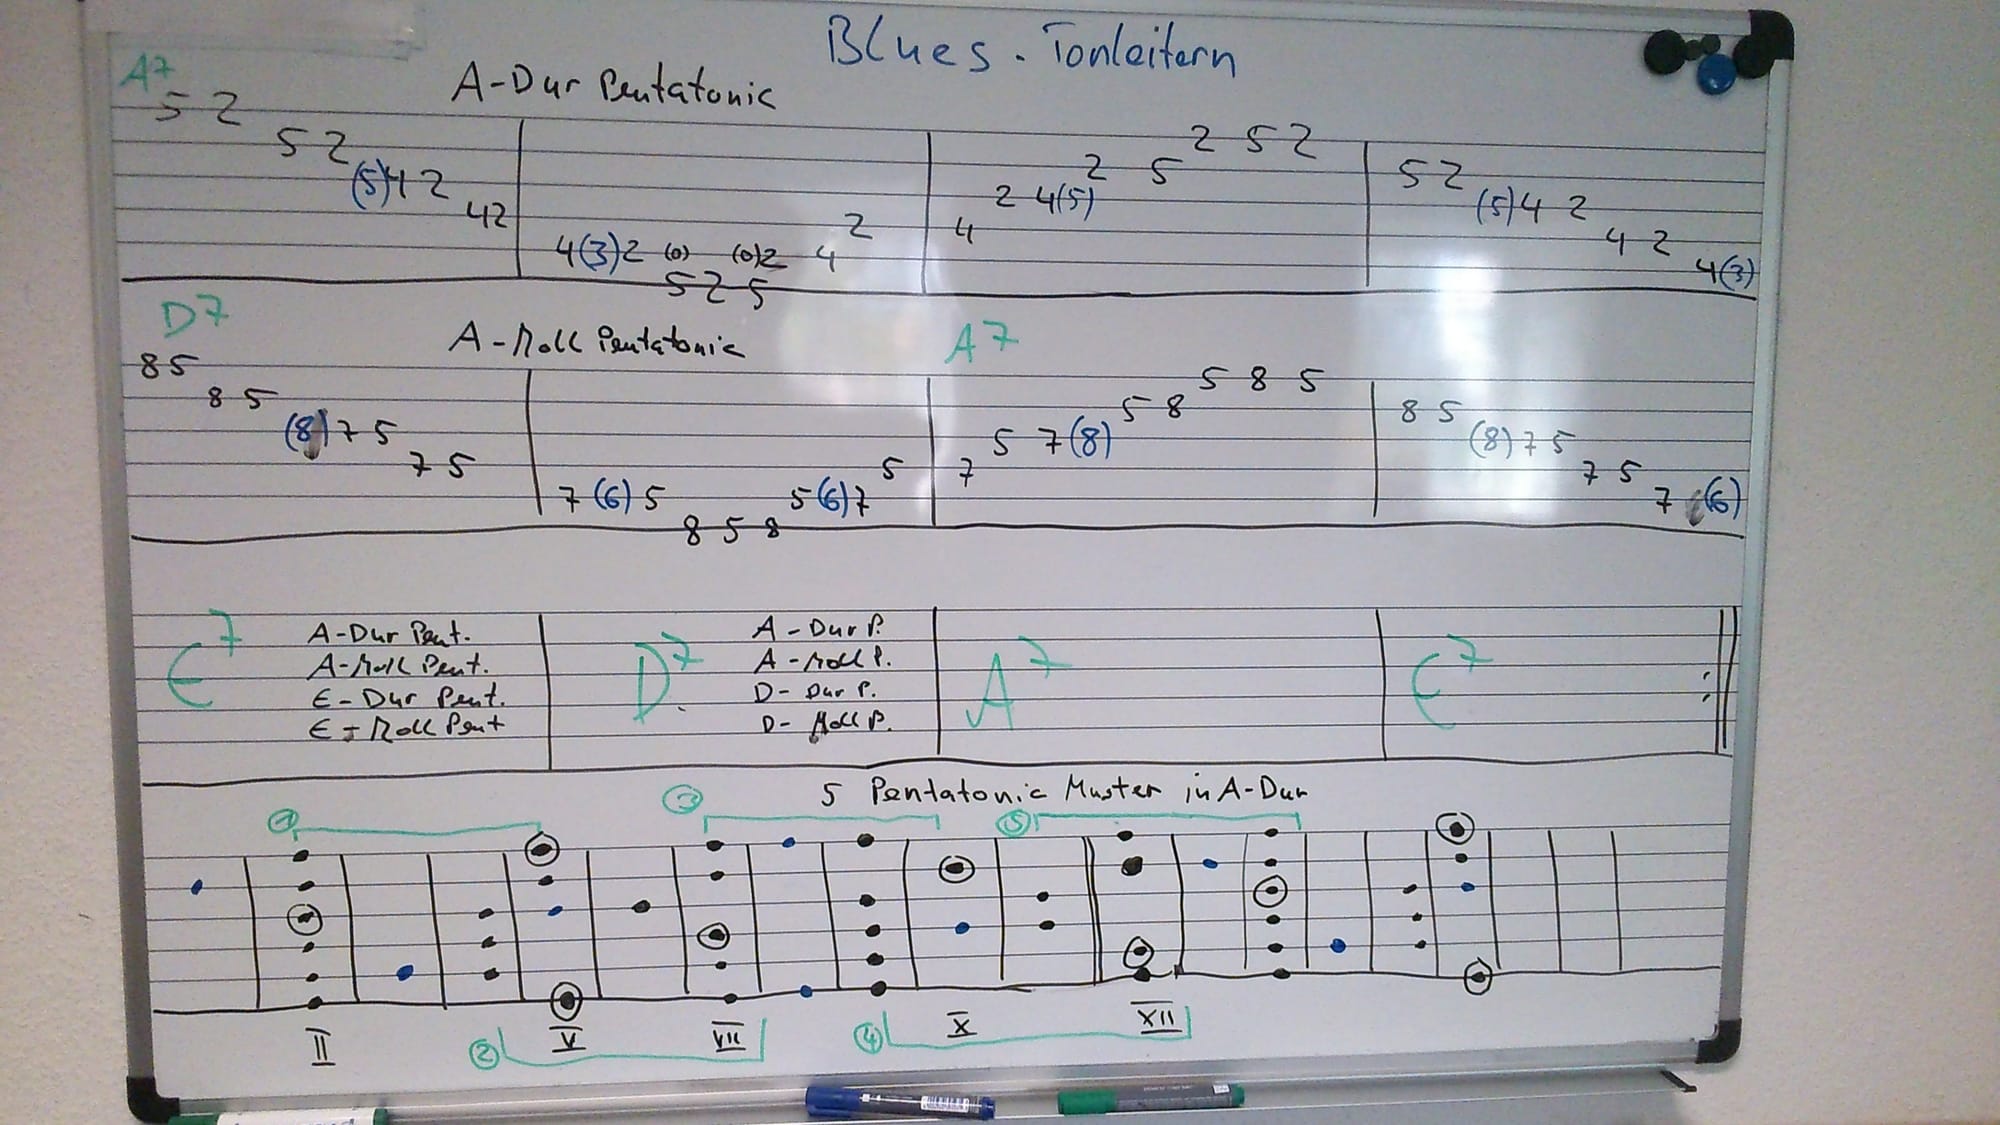 Blues - Tonleitern
A7 A-Dur Pentatonic
5 2 5 2 (5) 4 2 4 2 | 4 (3) 2 (0) 5 2 5 (0) 2 4 2 | 4 2 4 (5) 2 5 2 5 2 | 5 2 (5) 4 2 4 2 4 (3)
D7 A-Moll Pentatonic A7
8 5 8 5 (8) 7 5 7 5 | 7 (6) 5 8 5 8 5 (6) 7 5 | 7 5 7 (8) 5 8 5 8 5 | 8 5 (8) 7 5 7 5 7 (6)
E7 A-Dur Pent. D7 A-Dur P. A7 E7
A-Moll Pent. A-Moll P.
E-Dur Pent. D-Dur P.
E-Moll Pent D-Moll P.
5 Pentatonic Muster in A-Dur
1 3 5
II V VII X XII
2 4